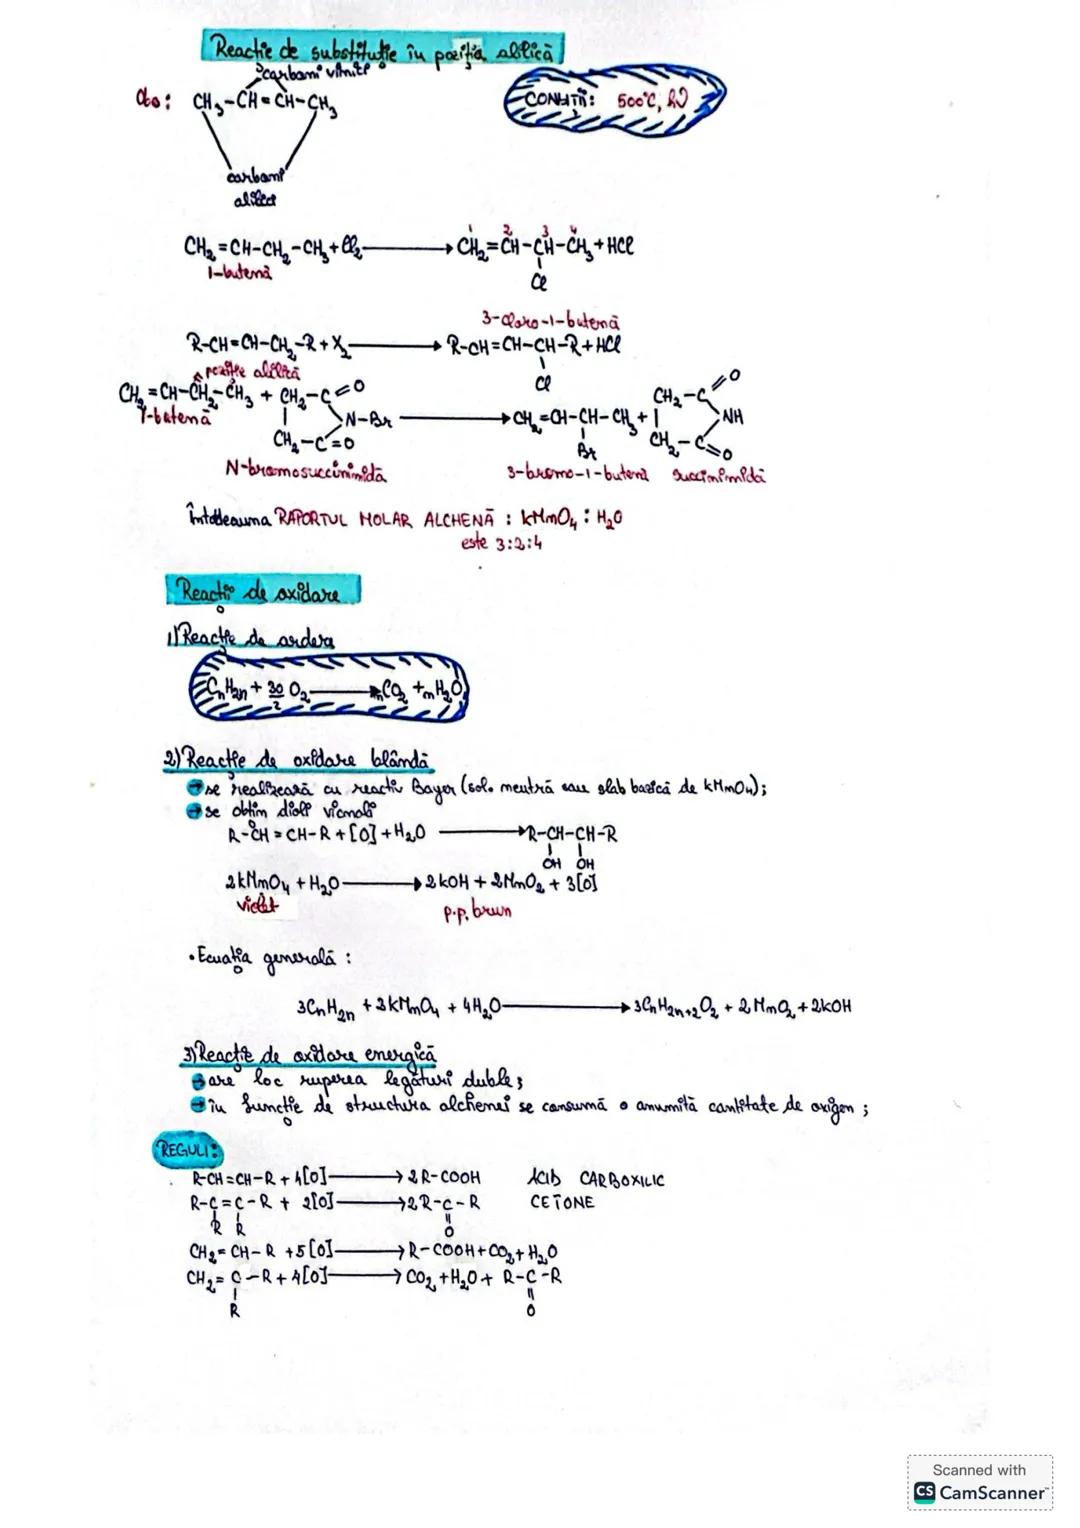 Reactie de substituție în poziția alilică
carboni vinilici
obs: CH3-CH=CH-CH3
CONDIȚII: 500°C, hν
carboni
alilici
1 2 3 4
CH2=CH-CH2-CH3+Cl2 → CH2=CH-CH-CH3+HCl
1-butenă
Cl
3-cloro-1-butenă
R-CH=CH-CH2-R+X2 → R-CH=CH-CH-R+HCl
poziție alilică
Cl
CH2=CH-CH2-CH3 + CH2-C=O N-Br CH2-C=O → CH2=CH-CH-CH3 + CH2-C=O NH CH2-C=O
1-butenă
Br
N-bromosuccinimidă 3-bromo-1-butenă succinimidă
Întotdeauna RAPORTUL MOLAR ALCHENĂ : KMnO4 : H2O
este 3:2:4
Reacții de oxidare
1) Reacție de ardere
CnH2n + 3n/2 O2 → nCO2 + nH2O
2) Reacție de oxidare blândă
→ se realizează cu reactiv Bayer (sol. neutră sau slab bazică de KMnO4);
→ se obțin dioli vicinali
R-CH=CH-R+[O]+H2O → R-CH-CH-R
OH OH
2KMnO4+H2O → 2KOH+2MnO2+3[O]
violet p.p. brun
• Ecuația generală :
3CnH2n +2KMnO4 + 4H2O → 3CnH2n+2O2 + 2MnO2+2KOH
3) Reacție de oxidare energică
→ are loc ruperea legături duble;
→ în funcție de structura alchenei se consumă o anumită cantitate de oxigen;
REGULI:
R-CH=CH-R+4[O] → 2R-COOH ACID CARBOXILIC
R-C=C-R + 2[O] → 2R-C-R CETONE
R R O
CH2=CH-R +5[O] → R-COOH+CO2+H2O
CH2=C-R+4[O] → CO2+H2O+ R-C-R
R O
Scanned with
CS CamScanner